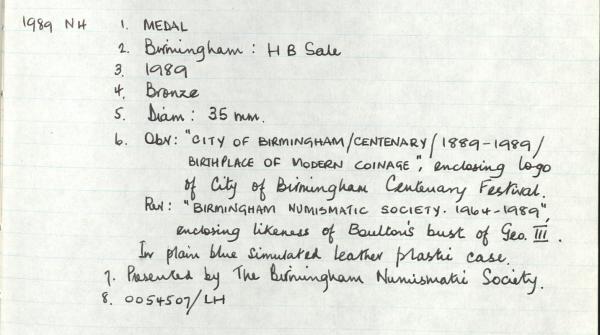 1989 NH 1. MEDAL
2. Birmingham : H B Sale
3. 1989
4. Bronze
5. Diam : 35 mm.
6. Obv: "CITY OF BIRMINGHAM/CENTENARY/1889-1989/
BIRTHPLACE OF MODERN COINAGE", enclosing logo
of City of Birmingham Centenary Festival.
Rev: "BIRMINGHAM NUMISMATIC SOCIETY. 1964-1989",
enclosing likeness of Boulton's bust of Geo. III.
In plain blue simulated leather plastic case.
7. Presented by The Birmingham Numismatic Society.
8. 0054507/LH